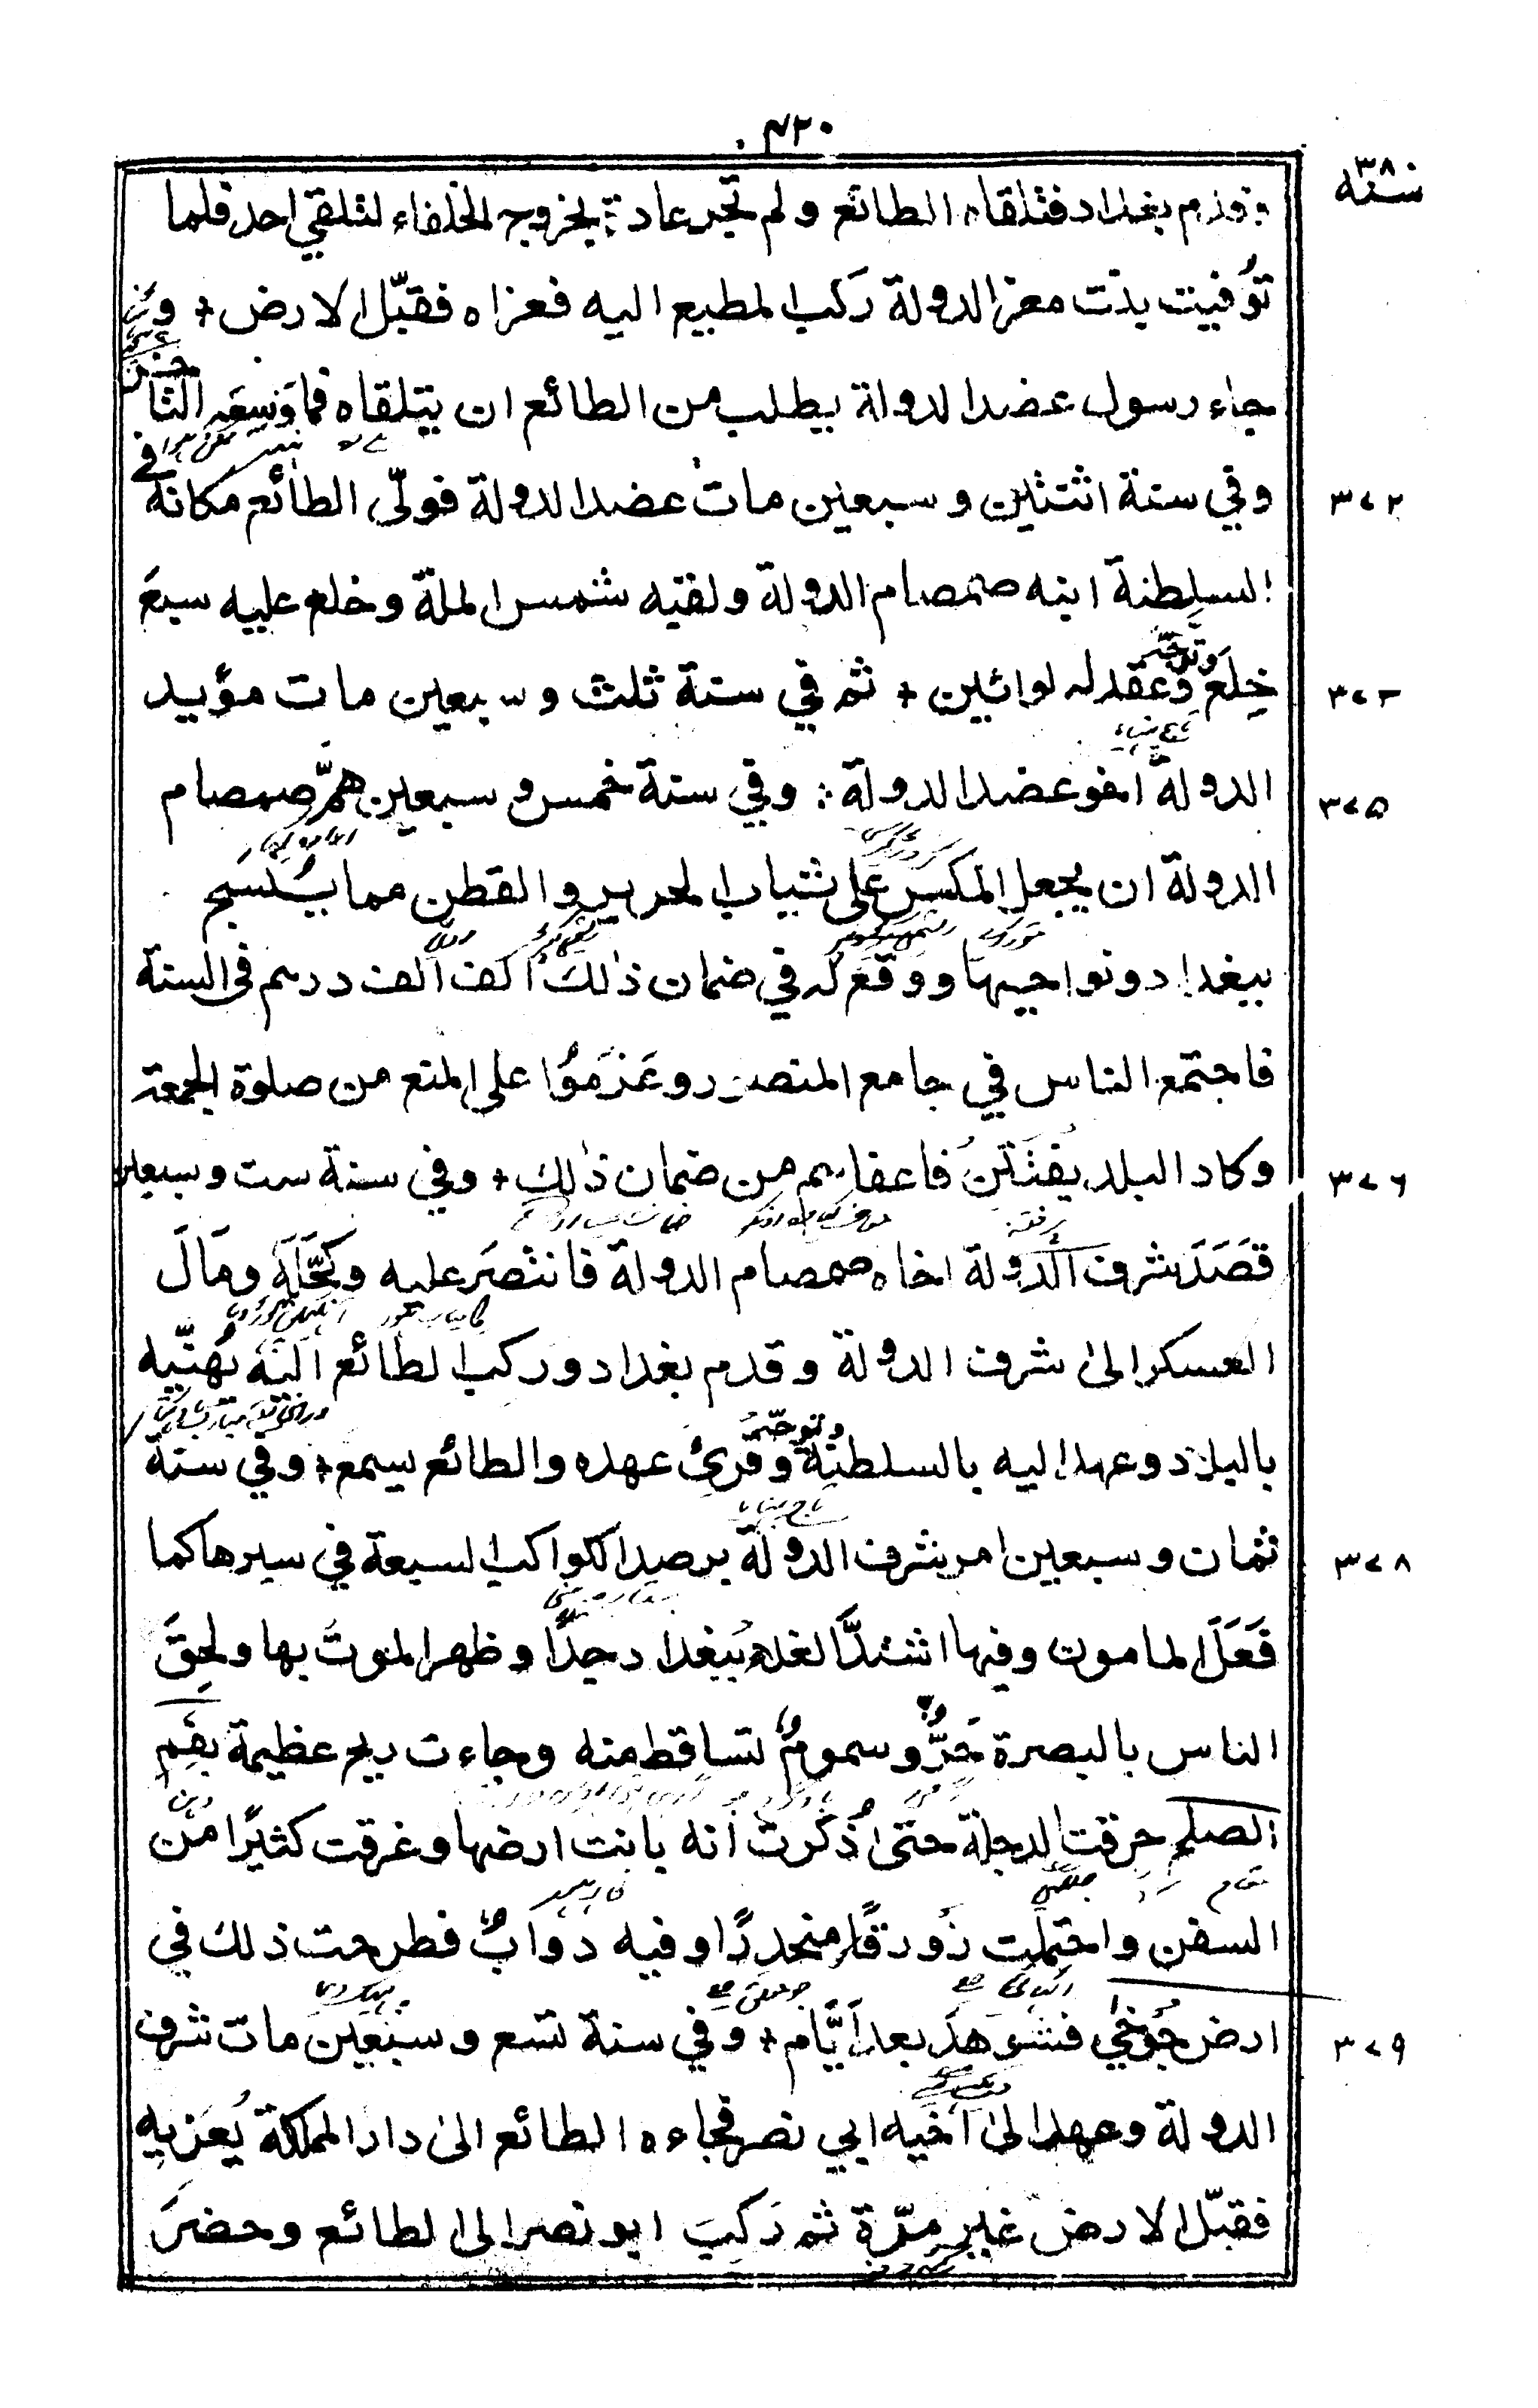 ۴۲۰
سنة ٣٨٠
وقدم بغداد فتلقاه الطائع ولم تجر عادة بخروج الخلفاء لتلقي احد فلما
توُفيت بنت معز الدولة رَكب المطيع اليه فعزاه فقبّل الارض +
جاء رسول عضد الدولة يطلب من الطائع ان يتلقاه فما وَسِعَه التا خر
وفي سنة اثنتين وسبعين مات عضد الدولة فولّى الطائع مكانه في
٣٧٢
السلطنة ابنه صمصام الدولة ولقبه شمس الملة وخلع عليه سبعَ
خِلَع وتوّجَه وعقد له لوائين + ثم في سنة ثلث وسبعين مات مؤيد
٣٧٣
الدولة اخو عضد الدولة وفي سنة خمس و سبعين همَّ صمصام
٣٧٥
الدولة ان يجعل المكس على ثياب الحرير والقطن مما يُنسَج
ببغداد ونواحيها ووقع له في ضمان ذٰلك الف الف درهم فى السنة
فاجتمع الناس في جامع المنصور وعَزَمُوا على المنع من صلوة الجمعة
وكاد البلد يفتَتِن فاعفاهم من ضمان ذٰلك + وفي سنة ست وسبعين
٣٧٦
قَصَدَ شرف الدولة اخاه صمصام الدولة فانتصَر عليه وكَحَّلَهَ ومَالَ
العسكر الىٰ شرف الدولة وقدم بغداد وركب الطائع اليه يُهنّيه
بالبلاد وعهد اليه بالسلطنة وتوجّه وقُرِئ عهده والطائع يسمع + وفي سنة
ثمان وسبعين امر شرف الدولة برصد الكواكب السبعة في سيرها كما
٣٧٨
فَعَلَ المامون وفيها اشتدَّ الغلاء ببغداد جدًا وظهر الموتُ بها ولحِقَ
الناس بالبصرة حَرٌّ وسمومٌ تساقط منه وجاءت ريح عظيمة بفم
الصلح حرقت الدجلة حتى ذُكرت انه بانت ارضها وغرقت كثيرًا من
السفن واحتملت زَورقًا منحدرًا وفيه دوابٌ فطرحت ذلك في
ارض جُوخٰى فشوهِدَ بعد اَيَّام + وفي سنة تسع وسبعين مات شرف
٣٧٩
الدولة وعهد الىٰ اخيه ابي نصر فجاءه الطائع الىٰ دار المملكة يُعَزيه
فقبّل الارض غير مرّة ثم رَكِبَ ابو نصر الى الطائع وحضرَ